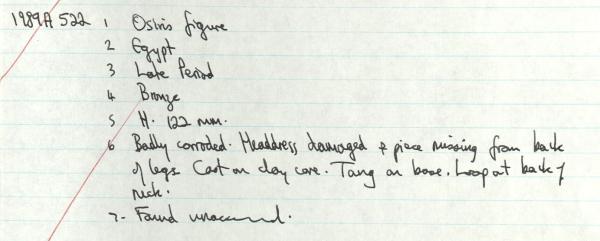 1989A 522 1 Osiris figure
2 Egypt
3 Late Period
4 Bronze
5 H. 122 mm.
6 Badly corroded. Headdress damaged & piece missing from back
of legs. Cast on clay core. Tang on base. Loop at back of
neck.
7 - Found unaccessioned.